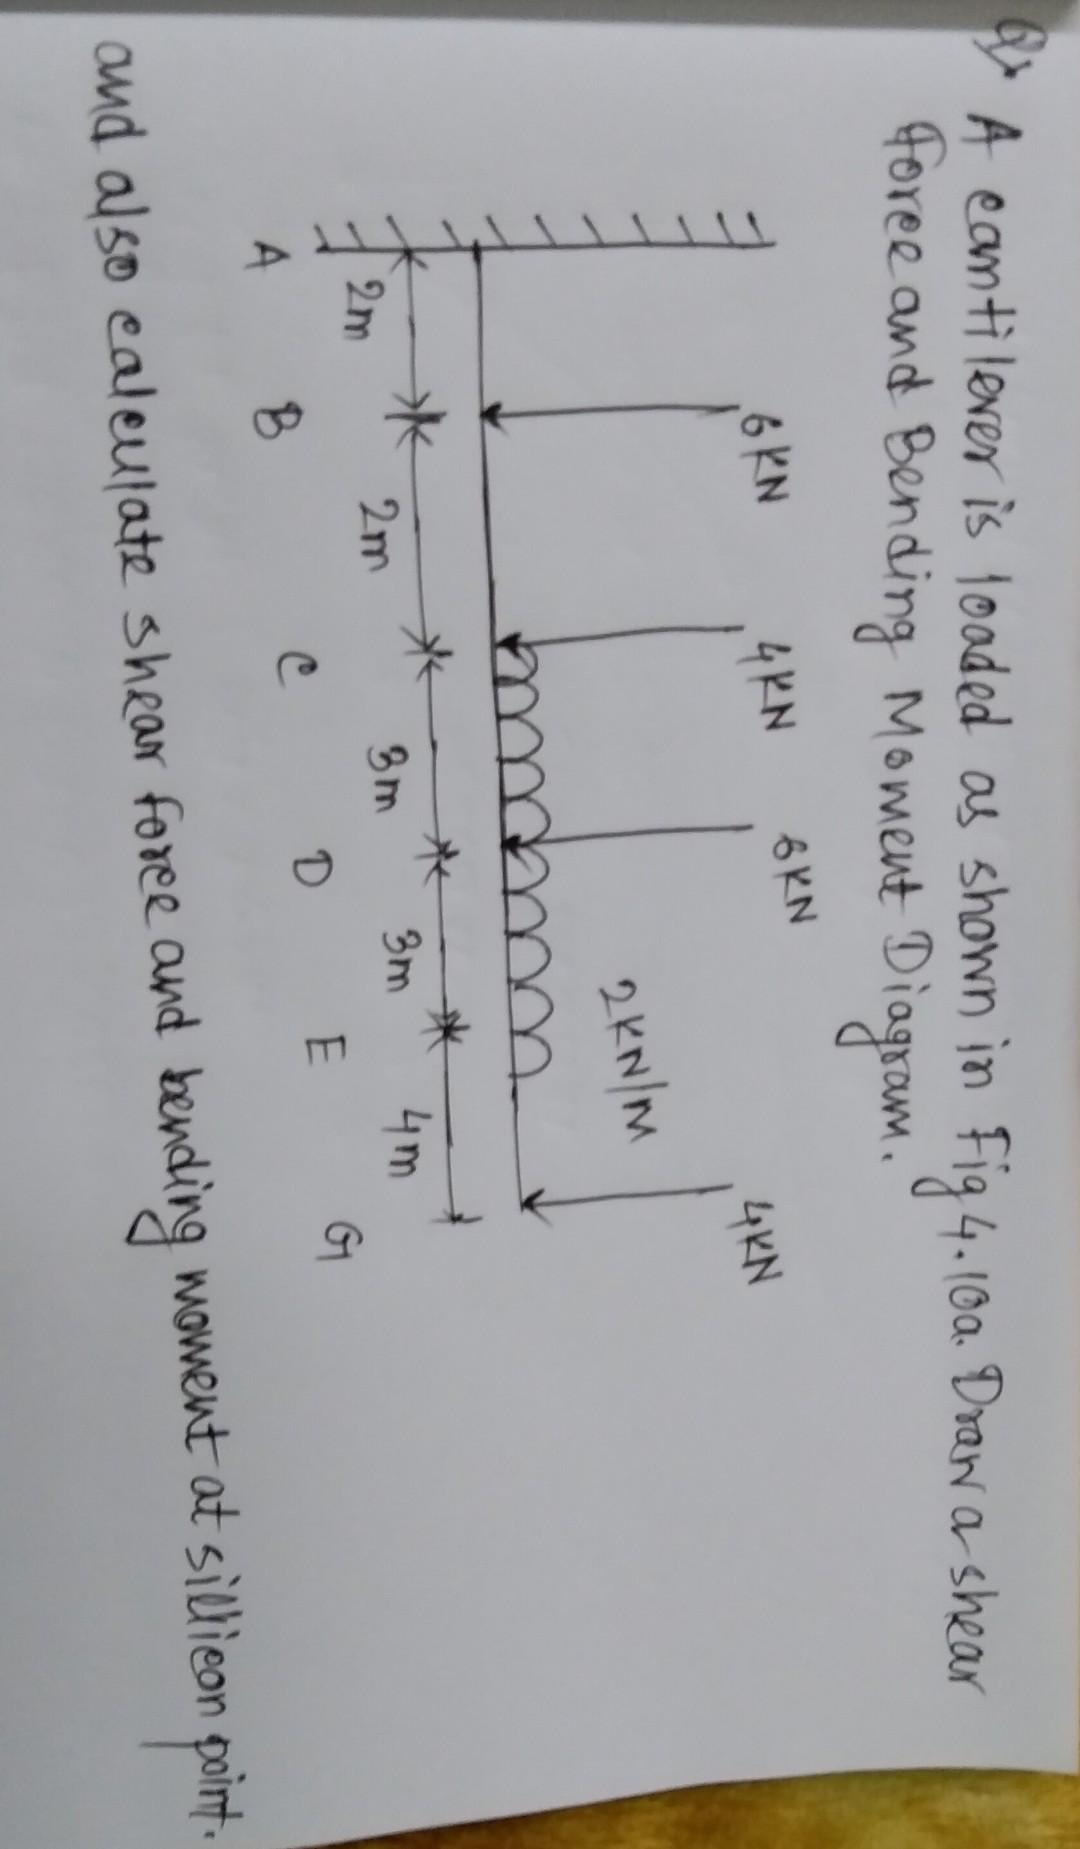 Q> A camtilever is loaded as shown in Fig 4.10a. Draw a shear
force and Bending Moment Diagram.
6KN 4KN 6KN 4KN
2KN/M
2m 2m 3m 3m 4m
A B C D E G
and also calculate shear force and bending moment at sillicon point.